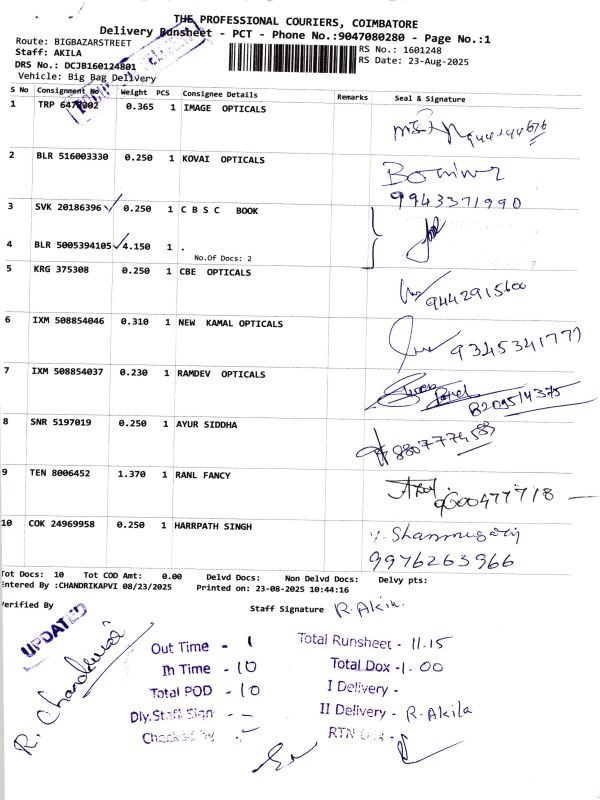 THE PROFESSIONAL COURIERS, COIMBATORE
Delivery Runsheet - PCT - Phone No.:9047080280 - Page No.:1
Route: BIGBAZARSTREET
RS No.: 1601248
Staff: AKILA
RS Date: 23-Aug-2025
DRS No.: DCJB160124801
Vehicle: Big Bag Delivery
S No Consignment No Weight PCS Consignee Details Remarks Seal & Signature
1 TRP 0.365 1 IMAGE OPTICALS
2 BLR 516003330 0.250 1 KOVAI OPTICALS
9943371990
3 SVK 20186396 0.250 1 C B S C BOOK
4 BLR 5005394105 4.150 1 .
No.Of Docs: 2
5 KRG 375308 0.250 1 CBE OPTICALS
9442915600
6 IXM 508854046 0.310 1 NEW KAMAL OPTICALS
9345341777
7 IXM 508854037 0.230 1 RAMDEV OPTICALS
8209514375
8 SNR 5197019 0.250 1 AYUR SIDDHA
8807774583
9 TEN 8006452 1.370 1 RANL FANCY
9600477718
10 COK 24969958 0.250 1 HARRPATH SINGH
9976263966
Tot Docs: 10 Tot COD Amt: 0.00 Delvd Docs: Non Delvd Docs: Delvy pts:
Entered By :CHANDRIKAPVI 08/23/2025 Printed on: 23-08-2025 10:44:16
Verified By
Staff Signature R. Akila
UPDATED
Out Time - 1
Total Runsheet - 11.15
In Time - 10
Total Dox - 1.00
Total POD - 10
I Delivery -
Dly.Staff Sign - -
II Delivery - R. Akila
Checked by -
RTN Dox -